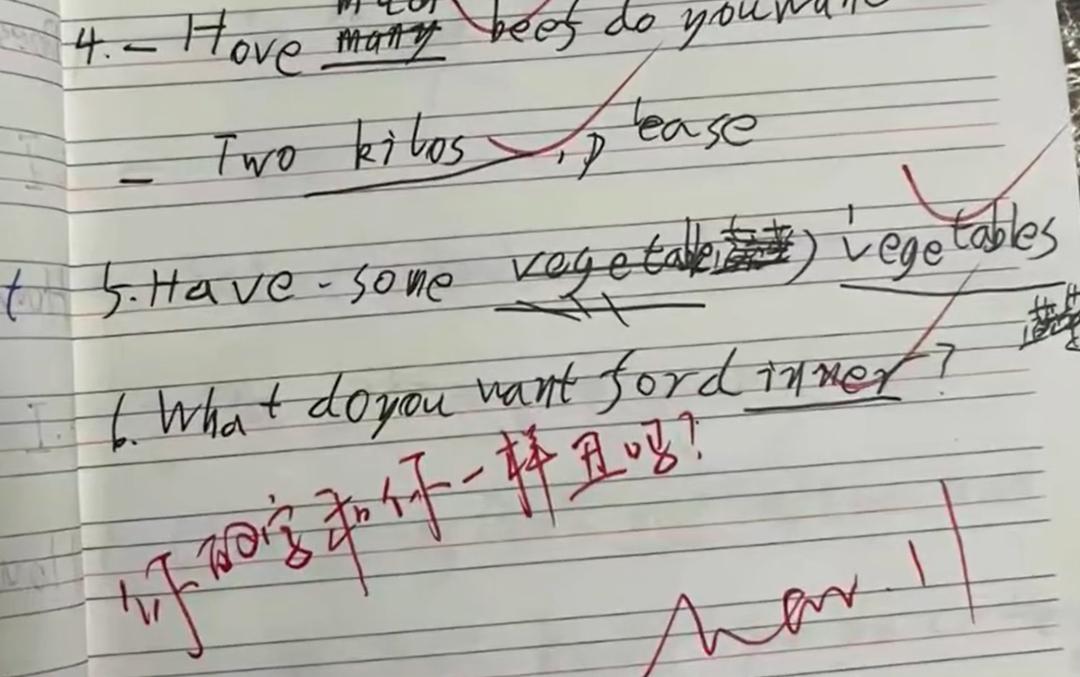 4. - Hove many beef do you
- Two kilos, please
t 5. Have - some vegetable, ) vegetables
6. What do you want for dinner?
你的字和你一样丑吗?
Mar. 11